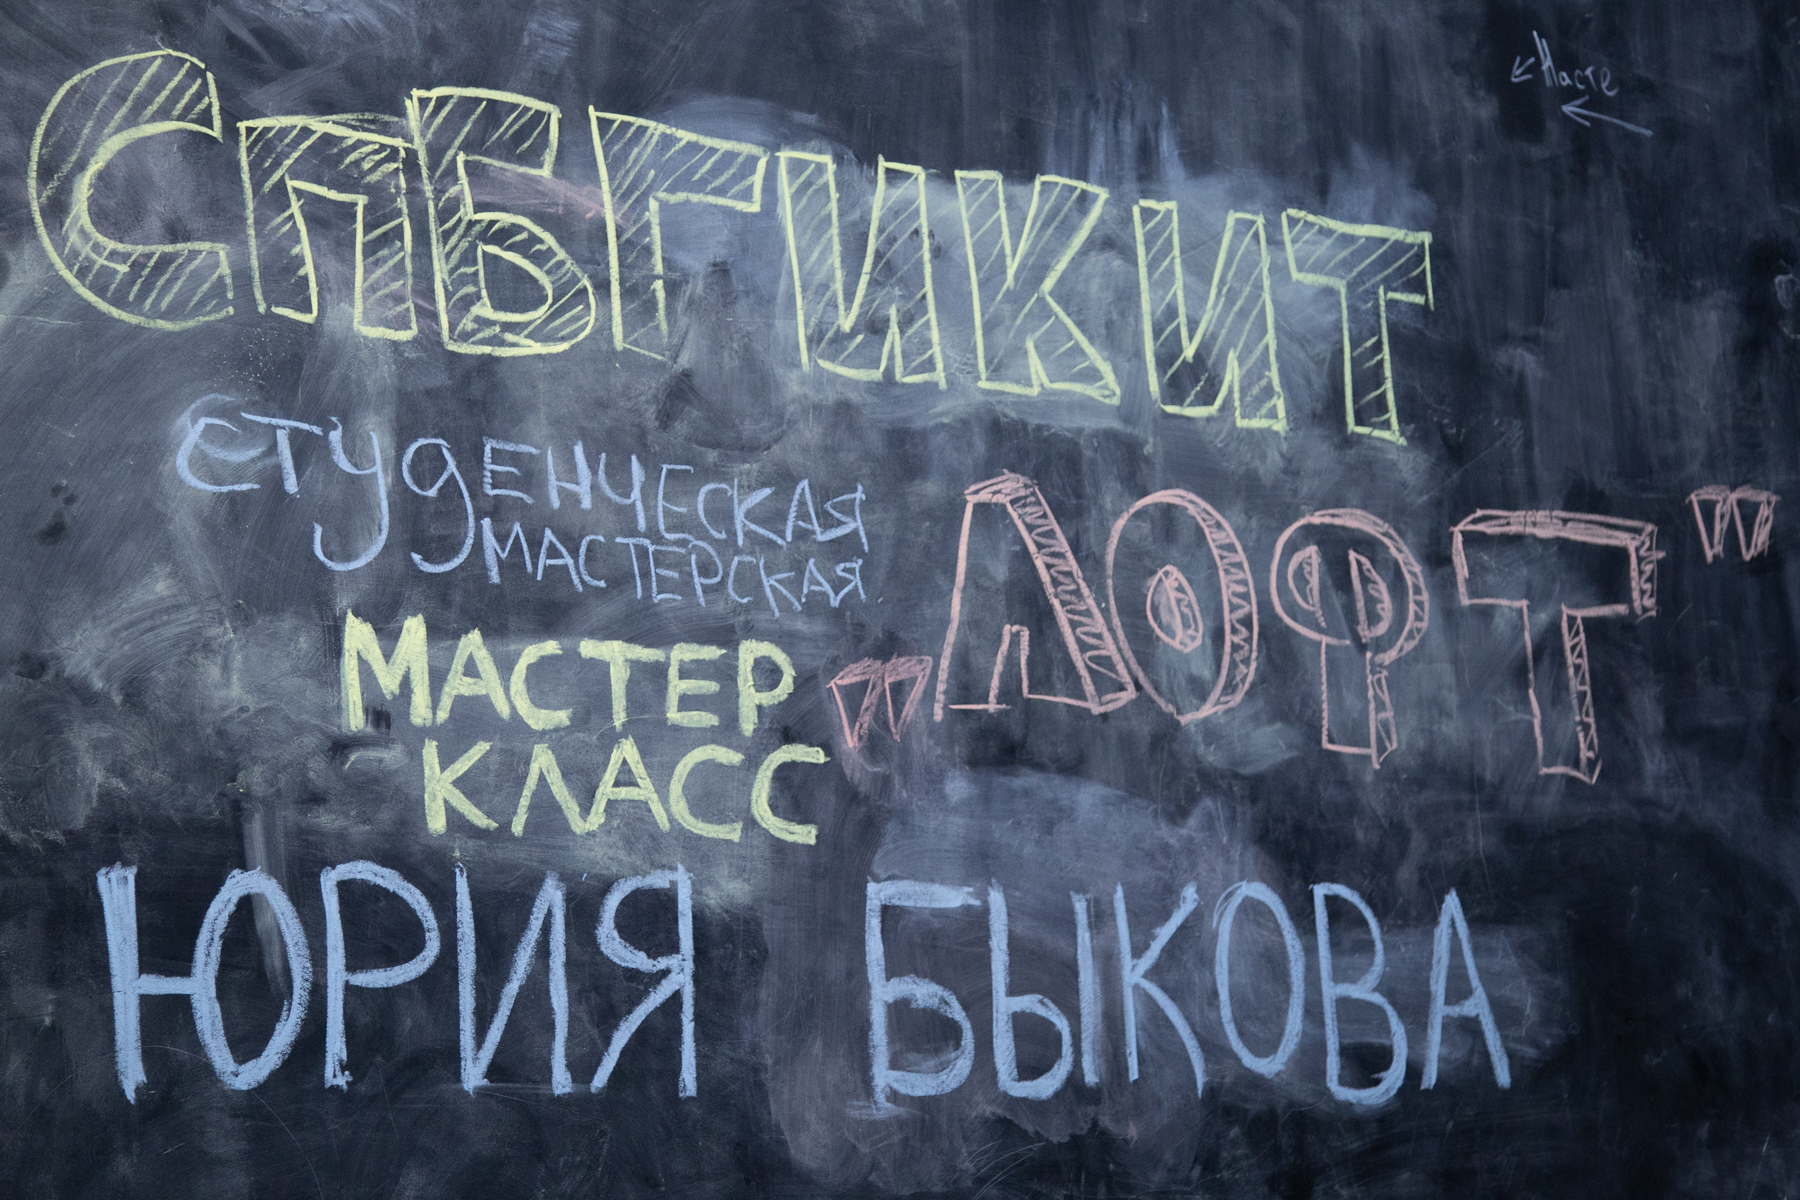 ← Насте
←
СПБГИКИТ
СТУДЕНЧЕСКАЯ
МАСТЕРСКАЯ
"ЛОФТ"
МАСТЕР
КЛАСС
ЮРИЯ БЫКОВА